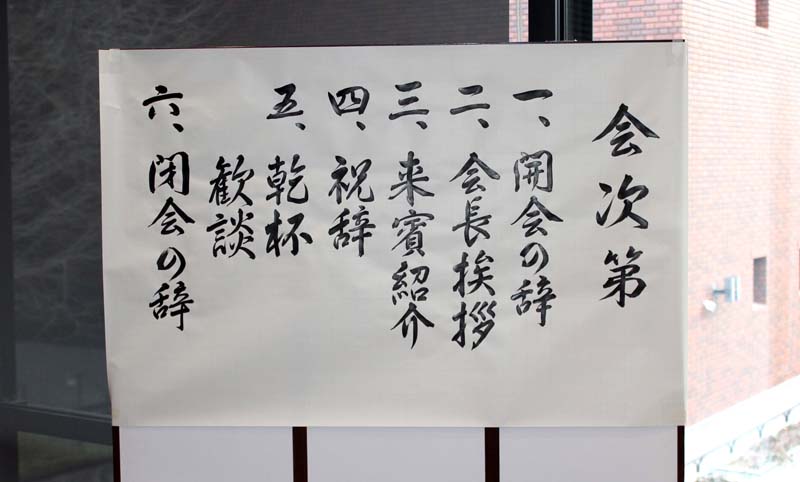 会次第
一、開会の辞
二、会長挨拶
三、来賓紹介
四、祝辞
五、乾杯
歓談
六、閉会の辞